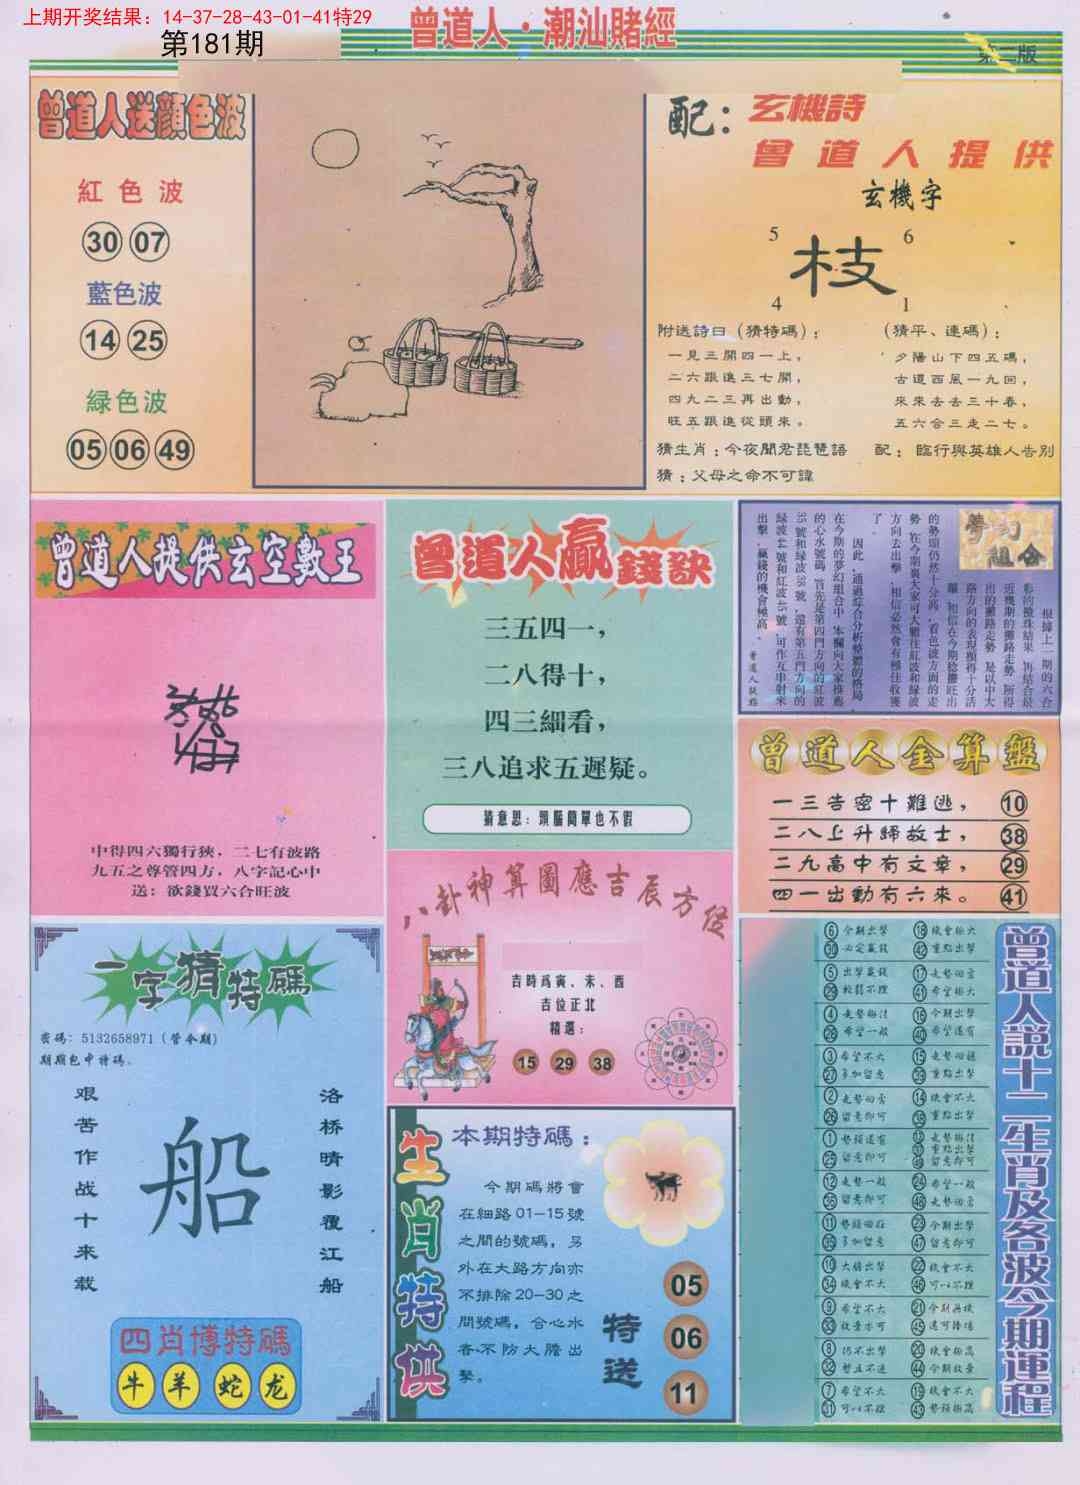 上期开奖结果：14-37-28-43-01-41特29
第181期
曾道人·潮汕賭經
第二版
曾道人送顔色波
紅色波
30 07
藍色波
14 25
緑色波
05 06 49
配：玄機詩
曾道人提供
玄機字
5 6
枝
4 1
附送詩曰（猜特碼）：
一見三開四一上，
二六跟進三七開，
四九二三再出動，
旺五跟進從頭來。
（猜平、連碼）：
夕陽山下四五碼，
古道西風一九回，
來來去去三十春，
五六合三走二七。
猜生肖：今夜聞君琵琶語
配：臨行與英雄人告別
猜：父母之命不可諱
曾道人提供玄空數王
中得四六獨行狹，二七有波路
九五之尊管四方，八字記心中
送：欲錢買六合旺波
曾道人贏錢訣
三五四一，
二八得十，
四三細看，
三八追求五遲疑。
猜意思：頭腦簡單也不假
夢幻組合
根據上一期的六合
彩的攪珠結果，再結合最
近幾期的攤路走勢，所得
出的攤路走勢，是以中大
路方向的表現顯得十分活
躍，相信在今期捻攤旺出
的勢頭仍然十分高，看色波方面的走
勢，在今期裏大家可大體往紅波和緑波
方向去出擊，相信必然會有極佳收獲
了。
因此，通過綜合分析整體的格局，
在今期的夢幻組合中，本欄向大家推薦
的心水號碼，首先是第四門方向的紅波
35號和緑波38號，還有第五門方向的
緑波44號和紅波45號，可作互串射來
出擊，贏錢的機會極高。
曾道人金算盤
一三告密十難逃， 10
二八上升歸故土， 38
二九高中有文章， 29
四一出動有六來。 41
八卦神算圖應吉辰方位
吉時爲寅、未、酉
吉位正北
精選：
15 29 38
一字猜特碼
密碼：5132658971（管今期）
期期包中特碼。
艰苦作战十来载
船
洛桥晴影覆江船
四肖博特碼
牛 羊 蛇 龙
生肖特供
本期特碼：
今期碼將會
在細路01-15號
之間的號碼，另
外在大路方向亦
不排除20-30之
間號碼，合心水
者不防大膽出
擊。
特送
05
06
11
曾道人説十二生肖及各波今期運程
6 今期出擊
30 必定贏錢
18 機會極大
42 重點出擊
5 出擊贏錢
29 輕鬆不理
17 走勢回靈
41 希望極大
4 走勢極佳
28 希望一般
16 今期出擊
40 希望還有
3 希望不大
27 多加留意
15 走勢回穩
39 重點出擊
2 走勢回靈
26 留意即可
14 機會不大
38 重點出擊
1 勢頭還有
25 留意即可
走勢極佳
重點出擊
49 留意即可
12 走勢一般
36 留意即可
24 希望一般
48 走勢回靈
11 勢頭回旺
35 多加留意
23 今期出擊
47 留意即可
10 大膽出擊
34 機會不大
22 機會不大
46 可以不理
9 希望不大
33 收蓋亦可
21 今期再搏
45 還可捧場
8 巧不出擊
32 暫且不追
20 機會極高
44 今期收蓋
7 希望不大
31 可以不理
19 機會不大
43 勢頭極高